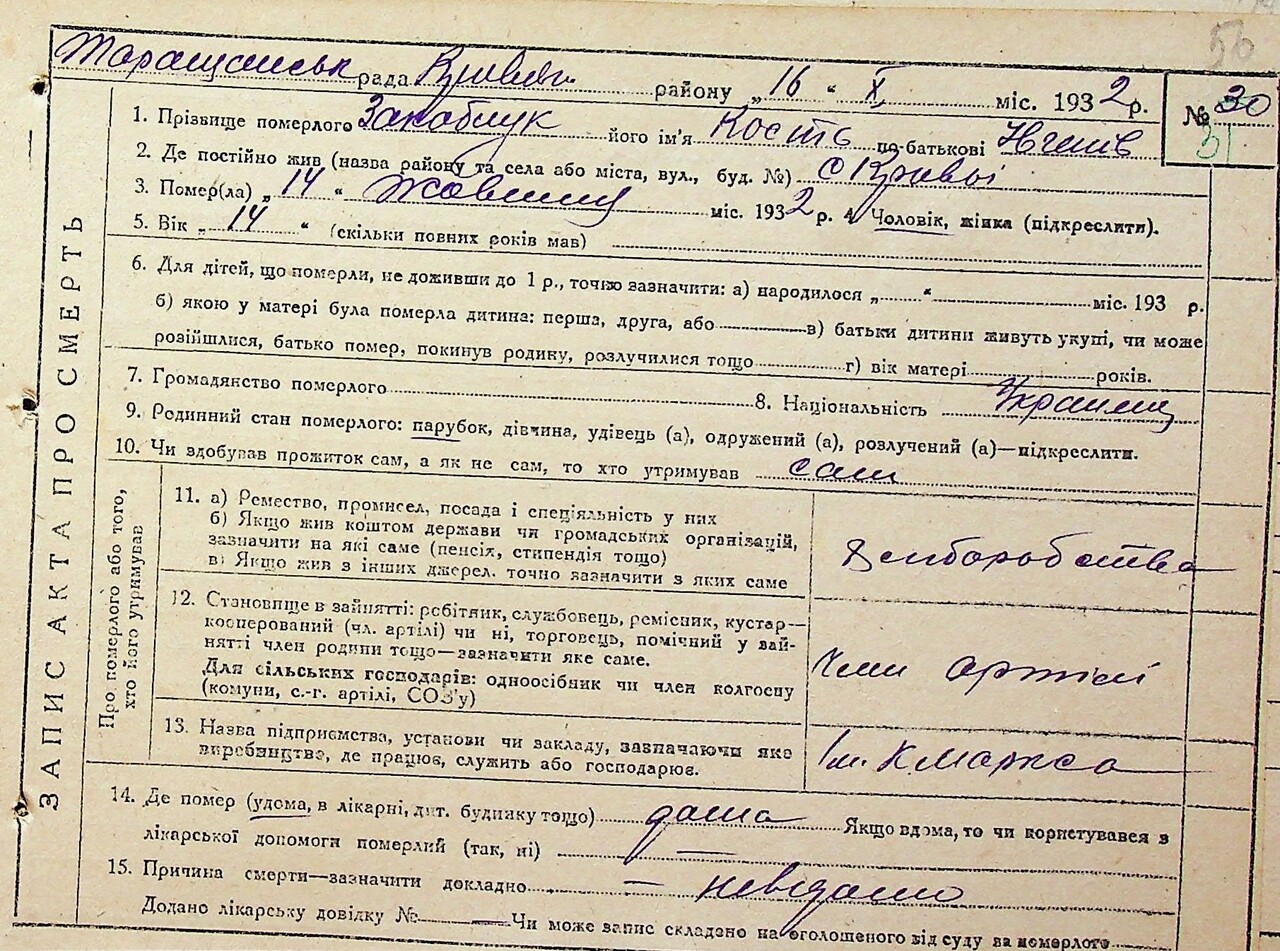 50
Таращанськ рада Криве району „16“ X міс. 1932 р. № 30
31
1. Прізвище померлого Закаблук його ім'я Кость по-батькові
2. Де постійно жив (назва району та села або міста, вул., буд. №) с Криві
3. Помер(ла) „14“ Жовтня міс. 1932 р. 4. Чоловік, жінка (підкреслити).
5. Вік „14“ (скільки повних років мав)
6. Для дітей, що померли, не доживши до 1 р., точно зазначити: а) народилося „ “ міс. 193 р.
б) якою у матері була померла дитина: перша, друга, або в) батьки дитини живуть укупі, чи може
розійшлися, батько помер, покинув родину, розлучилися тощо г) вік матері років.
7. Громадянство померлого 8. Національність Українец
9. Родинний стан померлого: парубок, дівчина, удівець (а), одружений (а), розлучений (а)—підкреслити.
10. Чи здобував прожиток сам, а як не сам, то хто утримував сам
ЗАПИС АКТА ПРО СМЕРТЬ
Про померлого або того, хто його утримував
11. а) Ремество, промисел, посада і спеціяльність у них
б) Якщо жив коштом держави чи громадських організацій,
зазначити на які саме (пенсія, стипендія тощо)
в) Якщо жив з інших джерел, точно зазначити з яких саме
хліборобства
12. Становище в зайнятті: робітник, службовець, ремісник, кустар—
кооперований (чл. артілі) чи ні, торговець, помічний у зай-
нятті член родини тощо—зазначити яке саме.
Для сільських господарів: одноосібник чи член колгоспу
(комуни, с.-г. артілі, СОЗ'у)
член артілі
13. Назва підприємства, установи чи закладу, зазначаючи яке
виробництво, де працює, служить або господарює.
ім. К Маркса
14. Де помер (удома, в лікарні, дит. будинку тощо) дома Якщо вдома, то чи користувався з
лікарської допомоги померлий (так, ні) —
15. Причина смерти—зазначити докладно — невідомо
Додано лікарську довідку № — Чи може запис складено на оголошеного від суду за померлого